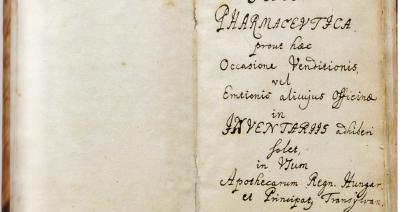 PHARMACEVTICA,
prout hæc
Occasione Venditionis,
vel
Emtionis alicujus Officinæ
in
INVENTARIIS adhiberi
solet,
in Usum
Apothecarum Regn. Hungar.
et Principat. Transylvan.